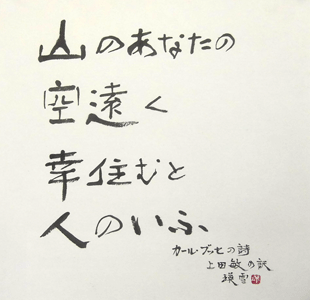 山のあなたの
空遠く
幸住むと
人のいふ
カール・ブッセの詩
上田敏の訳
瑛雪